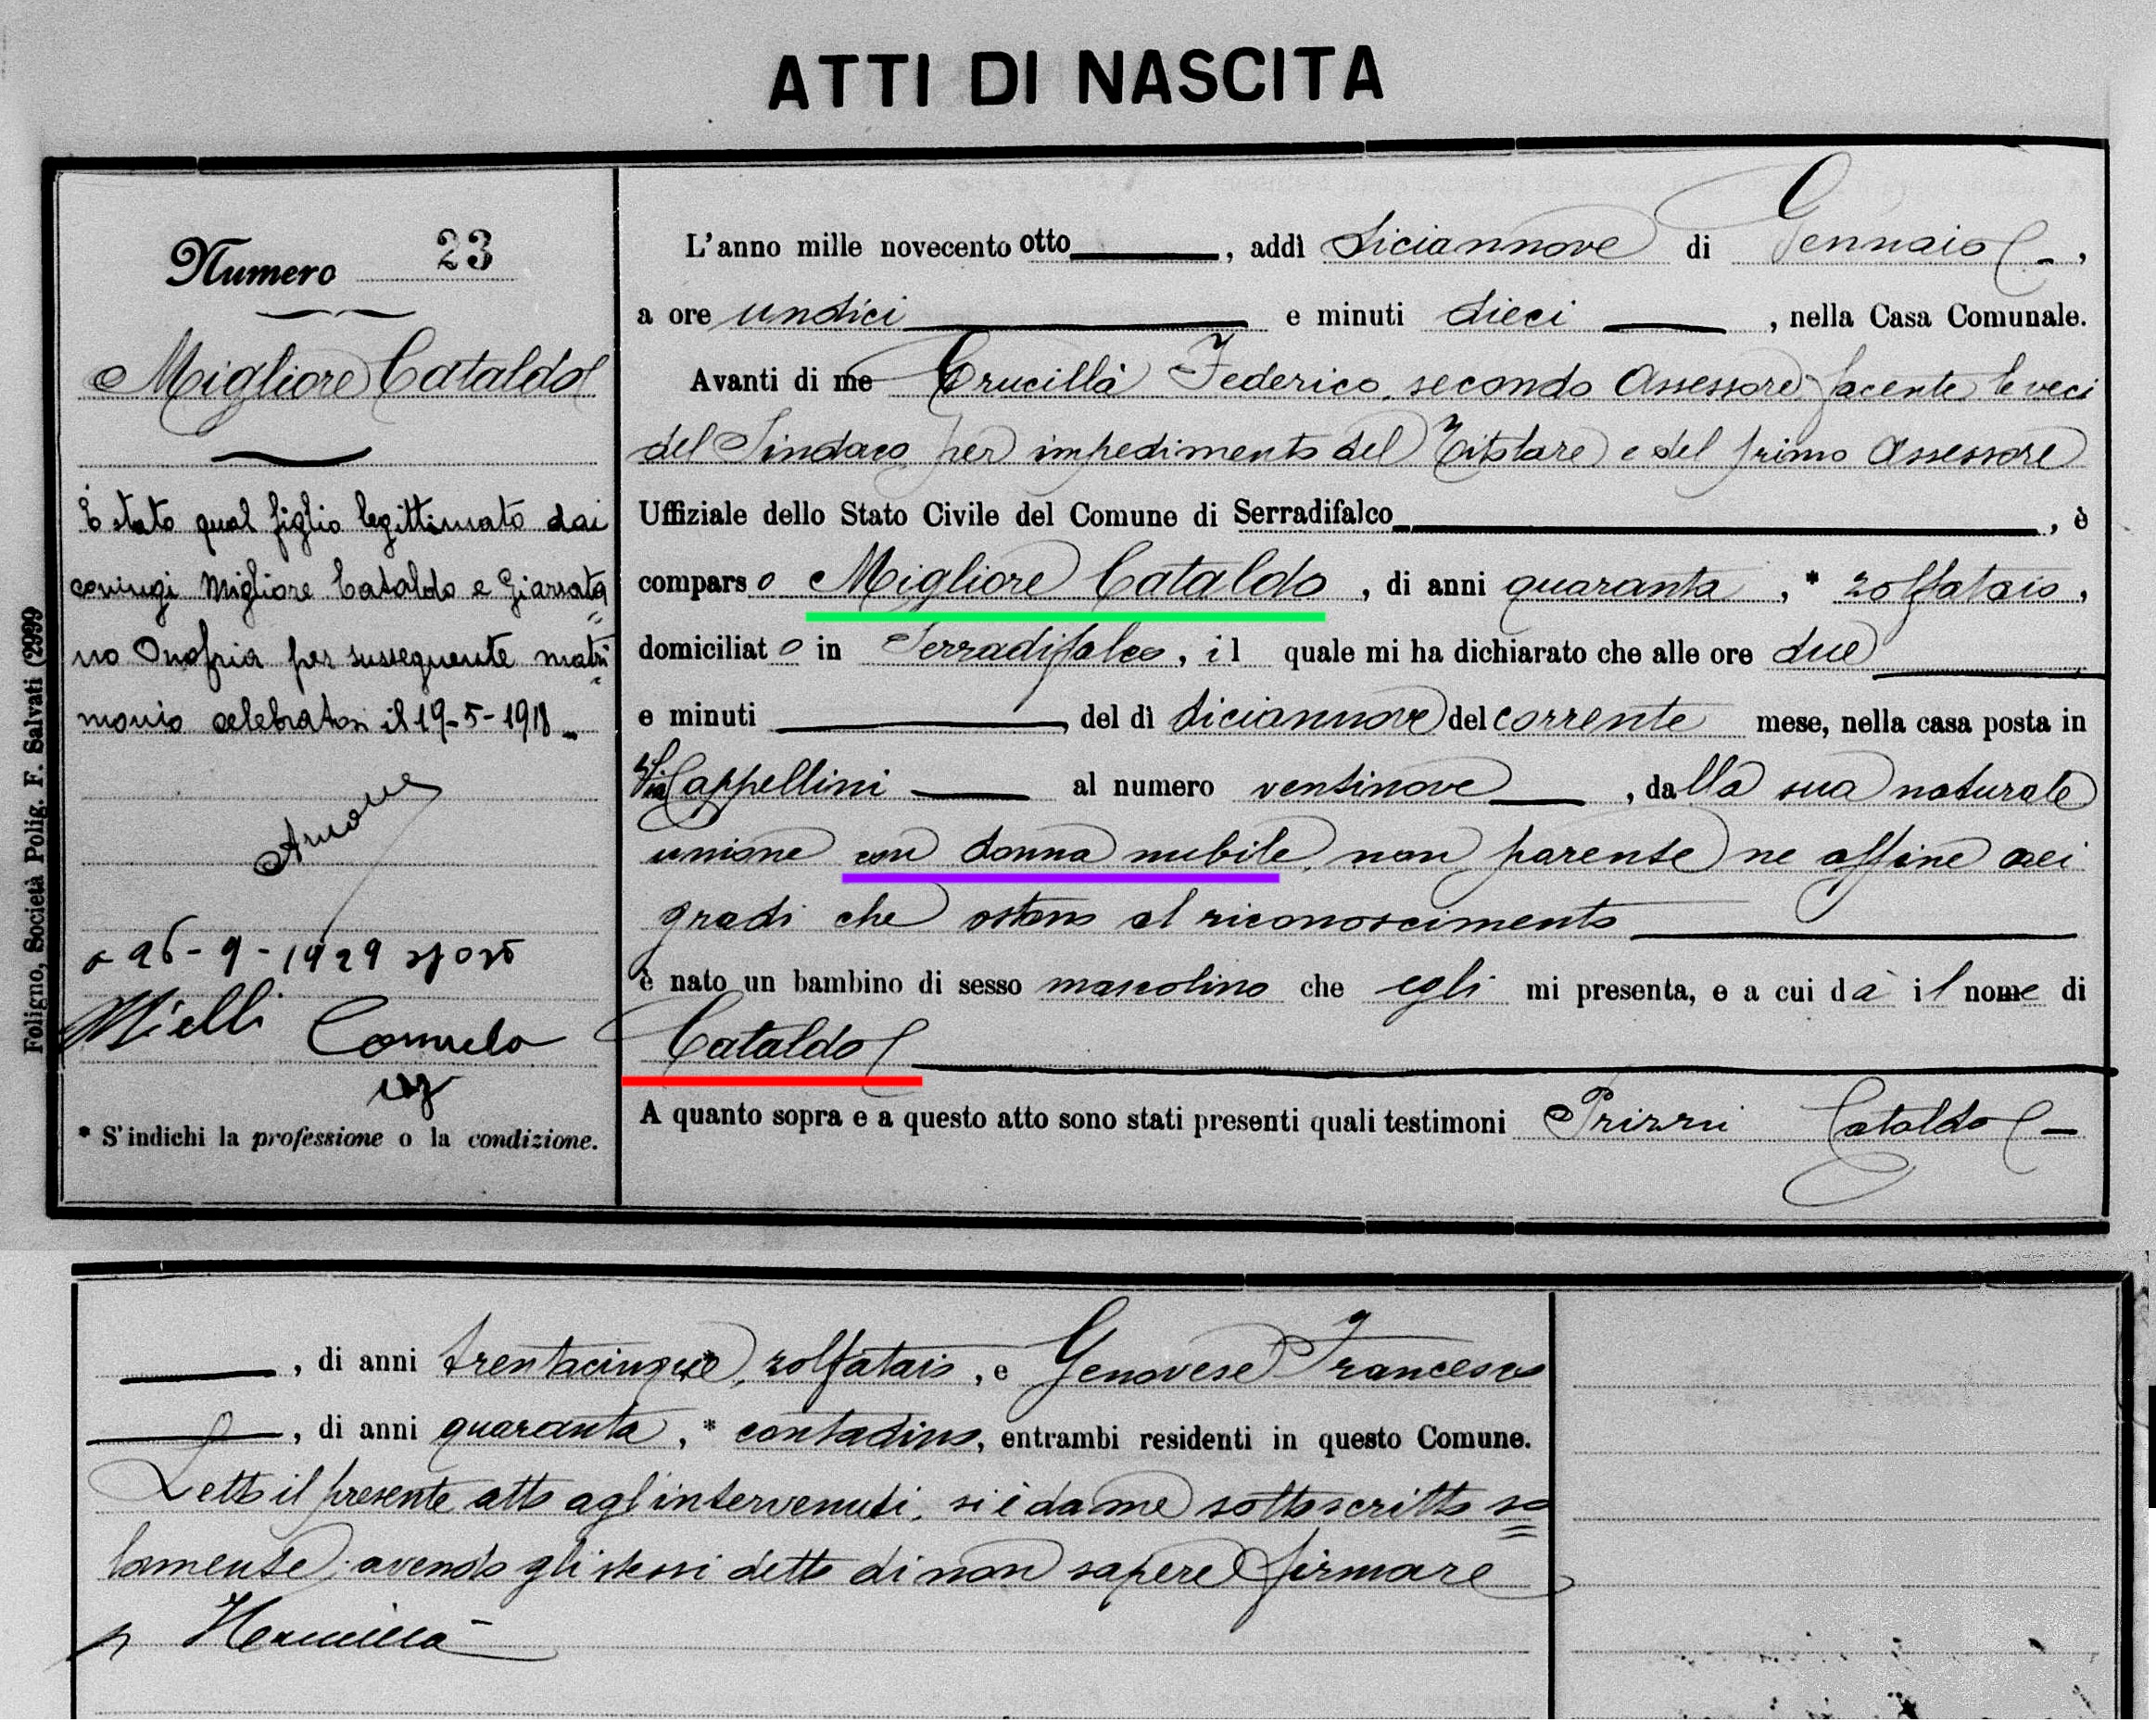 ATTI DI NASCITA
Numero 23
Migliore Cataldo
È stato qual figlio legittimato dai
coniugi Migliore Cataldo e Giarrata=
no Onofria per susseguente matri=
monio celebratosi il 19-5-1918
a 26-9-1929 sposò
Mielli Carmela
* S'indichi la professione o la condizione.
Foligno, Società Polig. F. Salvati (2999
L'anno mille novecento otto, addì diciannove di Gennaio,
a ore undici e minuti dieci, nella Casa Comunale.
Avanti di me Crucillà Federico, secondo Assessore facente le veci
del Sindaco per impedimento del Titolare e del primo Assessore
Uffiziale dello Stato Civile del Comune di Serradifalco, è
comparso Migliore Cataldo, di anni quaranta, * zolfataio,
domiciliato in Serradifalco, il quale mi ha dichiarato che alle ore due
e minuti , del dì diciannove del corrente mese, nella casa posta in
Via Cappellini al numero ventinove, dalla sua naturale
unione con donna nubile, non parente ne affine nei
gradi che ostano al riconoscimento
è nato un bambino di sesso mascolino che egli mi presenta, e a cui dà il nome di
Cataldo
A quanto sopra e a questo atto sono stati presenti quali testimoni Prizzi Cataldo
, di anni trentacinque, zolfataio, e Genovese Francesco
, di anni quaranta, * contadino, entrambi residenti in questo Comune.
Letto il presente atto agl'intervenuti, si è da me sottoscritto so=
lamente, avendo gli stessi detto di non sapere firmare